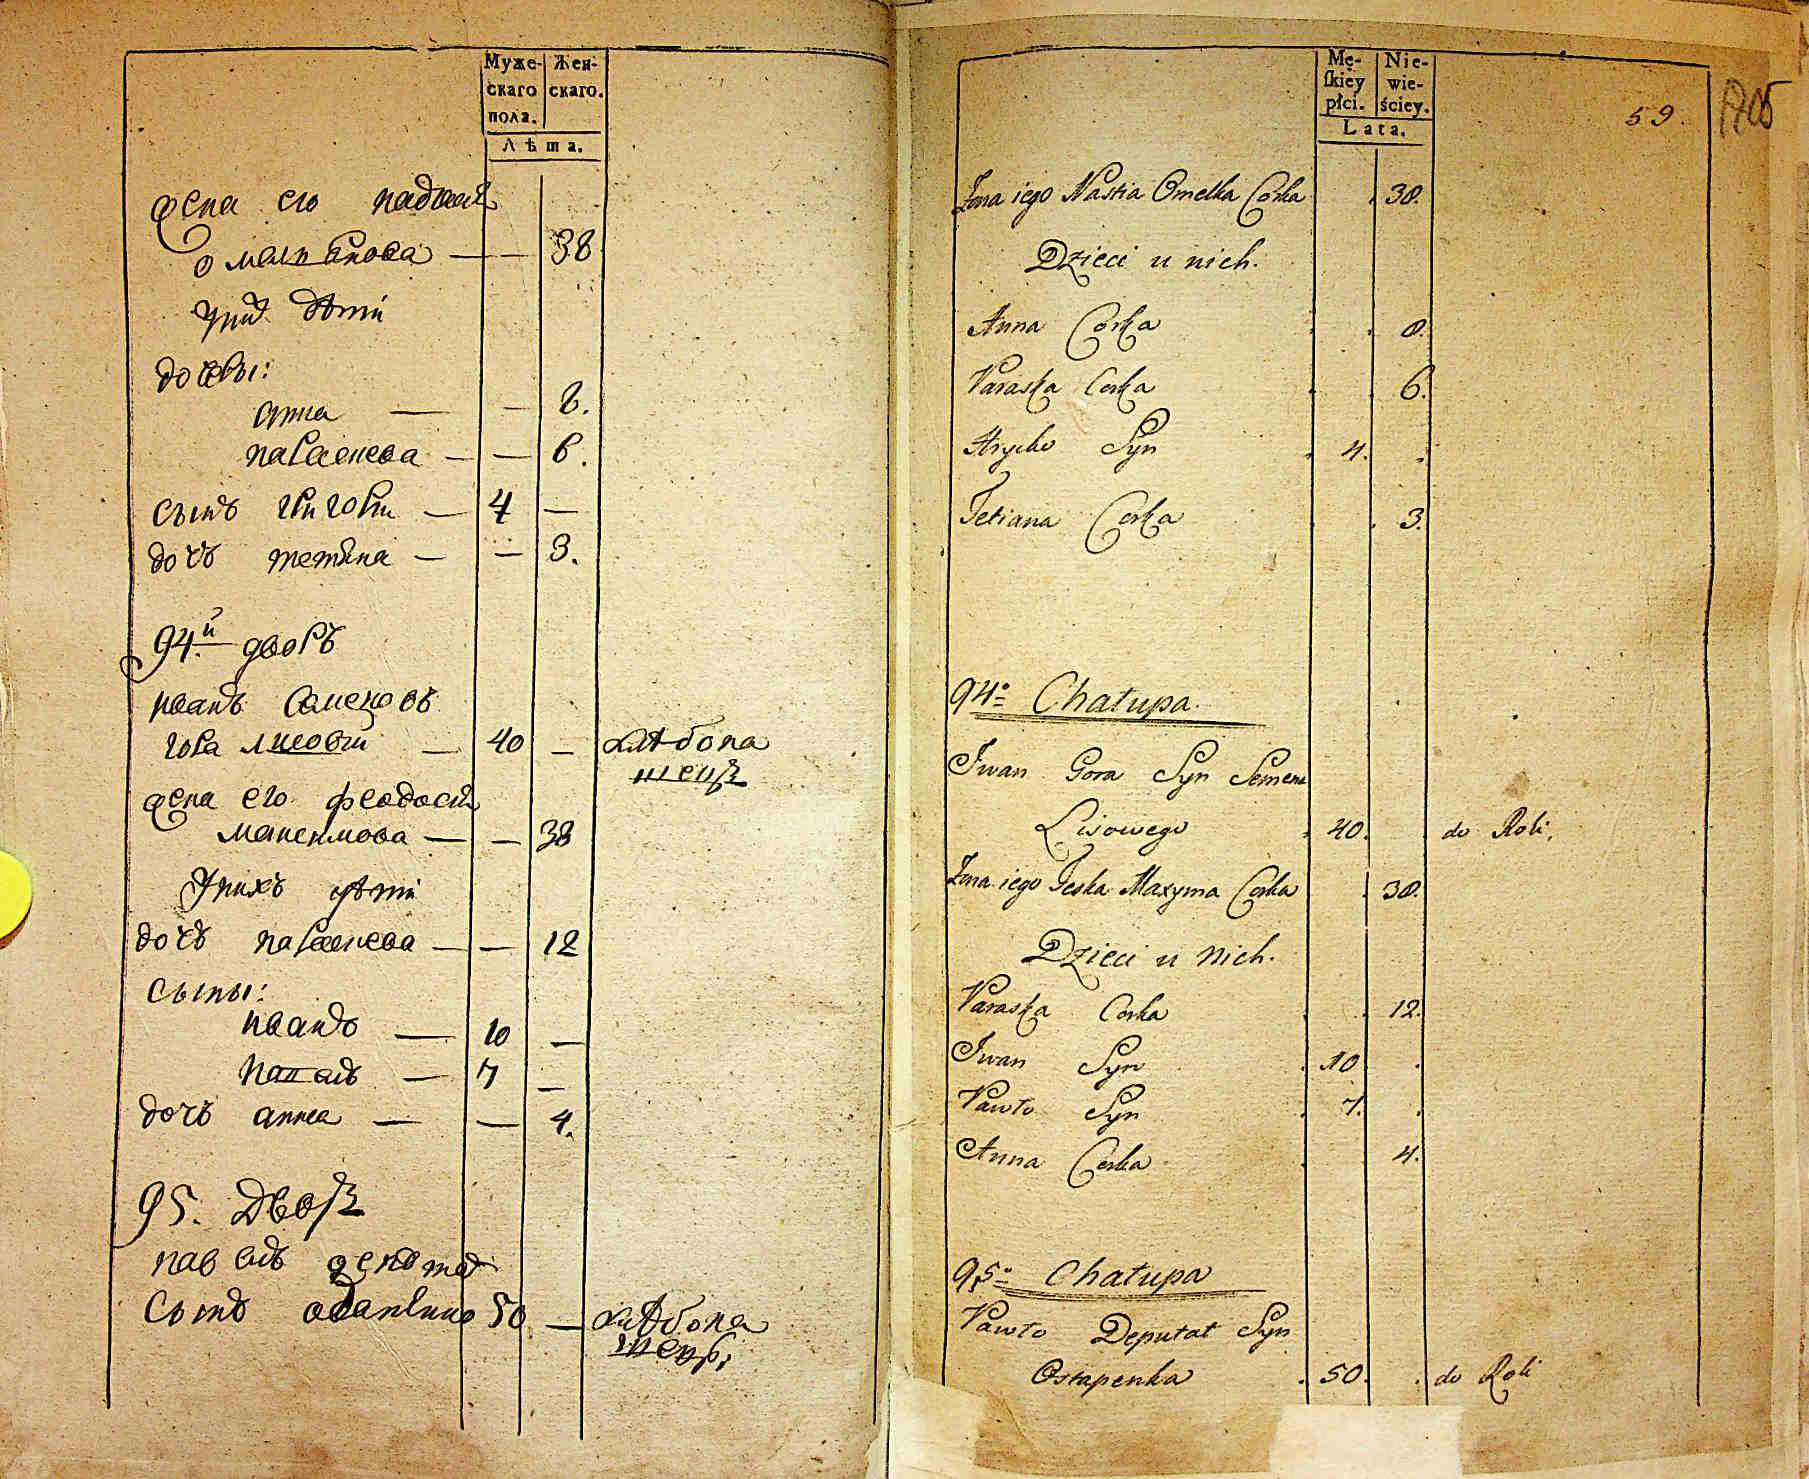 Муже-
скаго
пола.
Жен-
скаго.
Лѣта.
жена его
омельянова — — 38
у них дѣти
дочеры:
анна — — 8.
параскева — — 6.
сынъ григории — 4 —
дочъ тетяна — — 3.
94.й дворъ
иванъ семеновъ
гора лисовии — 40 — хлѣбопа
шецъ
жена его феодосия
максимова — — 38
у нихъ дѣти
дочъ параскева — — 12
сыны:
иванъ — 10 —
павелъ — 7 —
дочъ анна — — 4.
95. Дворъ
павелъ депутат
сынъ 50 — хлѣбопа
шецъ
Mę-
ſkiey
płci.
Nie-
wie-
ściey.
Lata.
59.
Żona iego Nastia Omelka Corka 38.
Dzieci u nich.
Anna Corka 8.
Paraska Corka 6.
Hrycko Syn 4.
Tetiana Corka 3.
94o Chałupa.
Iwan Gora Syn Semena
Lisowego 40. do Roli.
Żona iego Feska Maxyma Corka 38.
Dzieci u Nich.
Paraska Corka 12.
Iwan Syn 10
Pawło Syn 7.
Anna Corka 4.
95o Chałupa
Pawło Deputat Syn
Ostapenka 50. do Roli